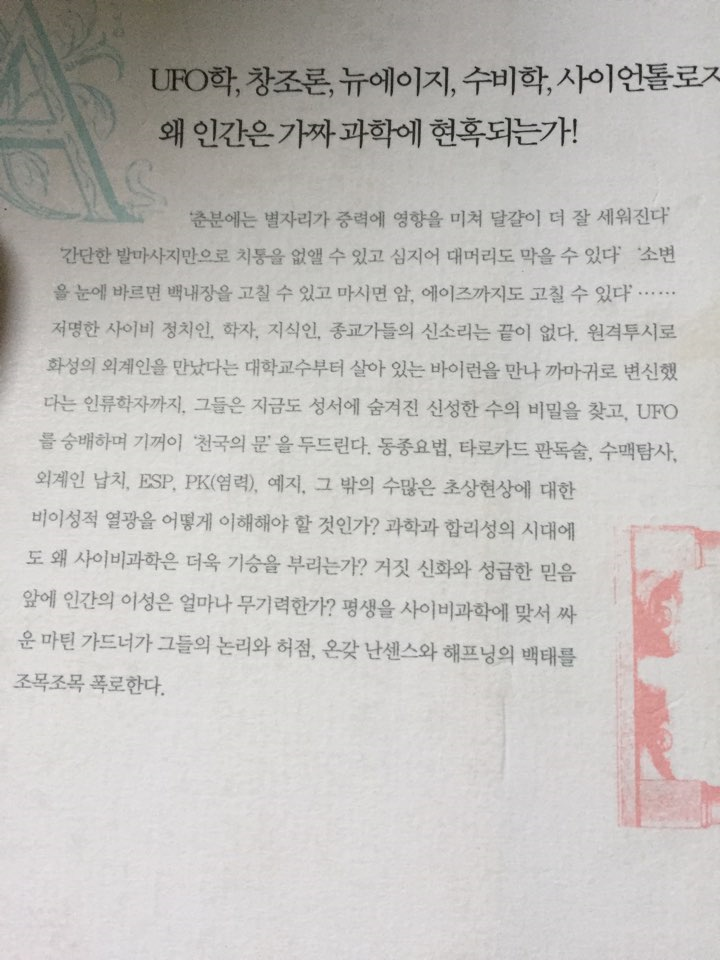 UFO학, 창조론, 뉴에이지, 수비학, 사이언톨로지
왜 인간은 가짜 과학에 현혹되는가!
'춘분에는 별자리가 중력에 영향을 미쳐 달걀이 더 잘 세워진다'
'간단한 발마사지만으로 치통을 없앨 수 있고 심지어 대머리도 막을 수 있다' '소변
을 눈에 바르면 백내장을 고칠 수 있고 마시면 암, 에이즈까지도 고칠 수 있다' ……
저명한 사이비 정치인, 학자, 지식인, 종교가들의 신소리는 끝이 없다. 원격투시로
화성의 외계인을 만났다는 대학교수부터 살아 있는 바이런을 만나 까마귀로 변신했
다는 인류학자까지, 그들은 지금도 성서에 숨겨진 신성한 수의 비밀을 찾고, UFO
를 숭배하며 기꺼이 '천국의 문'을 두드린다. 동종요법, 타로카드 판독술, 수맥탐사,
외계인 납치, ESP, PK(염력), 예지, 그 밖의 수많은 초상현상에 대한
비이성적 열광을 어떻게 이해해야 할 것인가? 과학과 합리성의 시대에
도 왜 사이비과학은 더욱 기승을 부리는가? 거짓 신화와 성급한 믿음
앞에 인간의 이성은 얼마나 무기력한가? 평생을 사이비과학에 맞서 싸
운 마틴 가드너가 그들의 논리와 허점, 온갖 난센스와 해프닝의 백태를
조목조목 폭로한다.